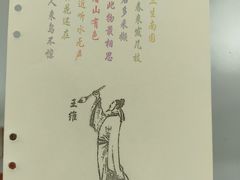 豆生南国
春来发几枝
君多采撷
此物最相思
山有色
近听水无声
花还在
人来鸟不惊
王维